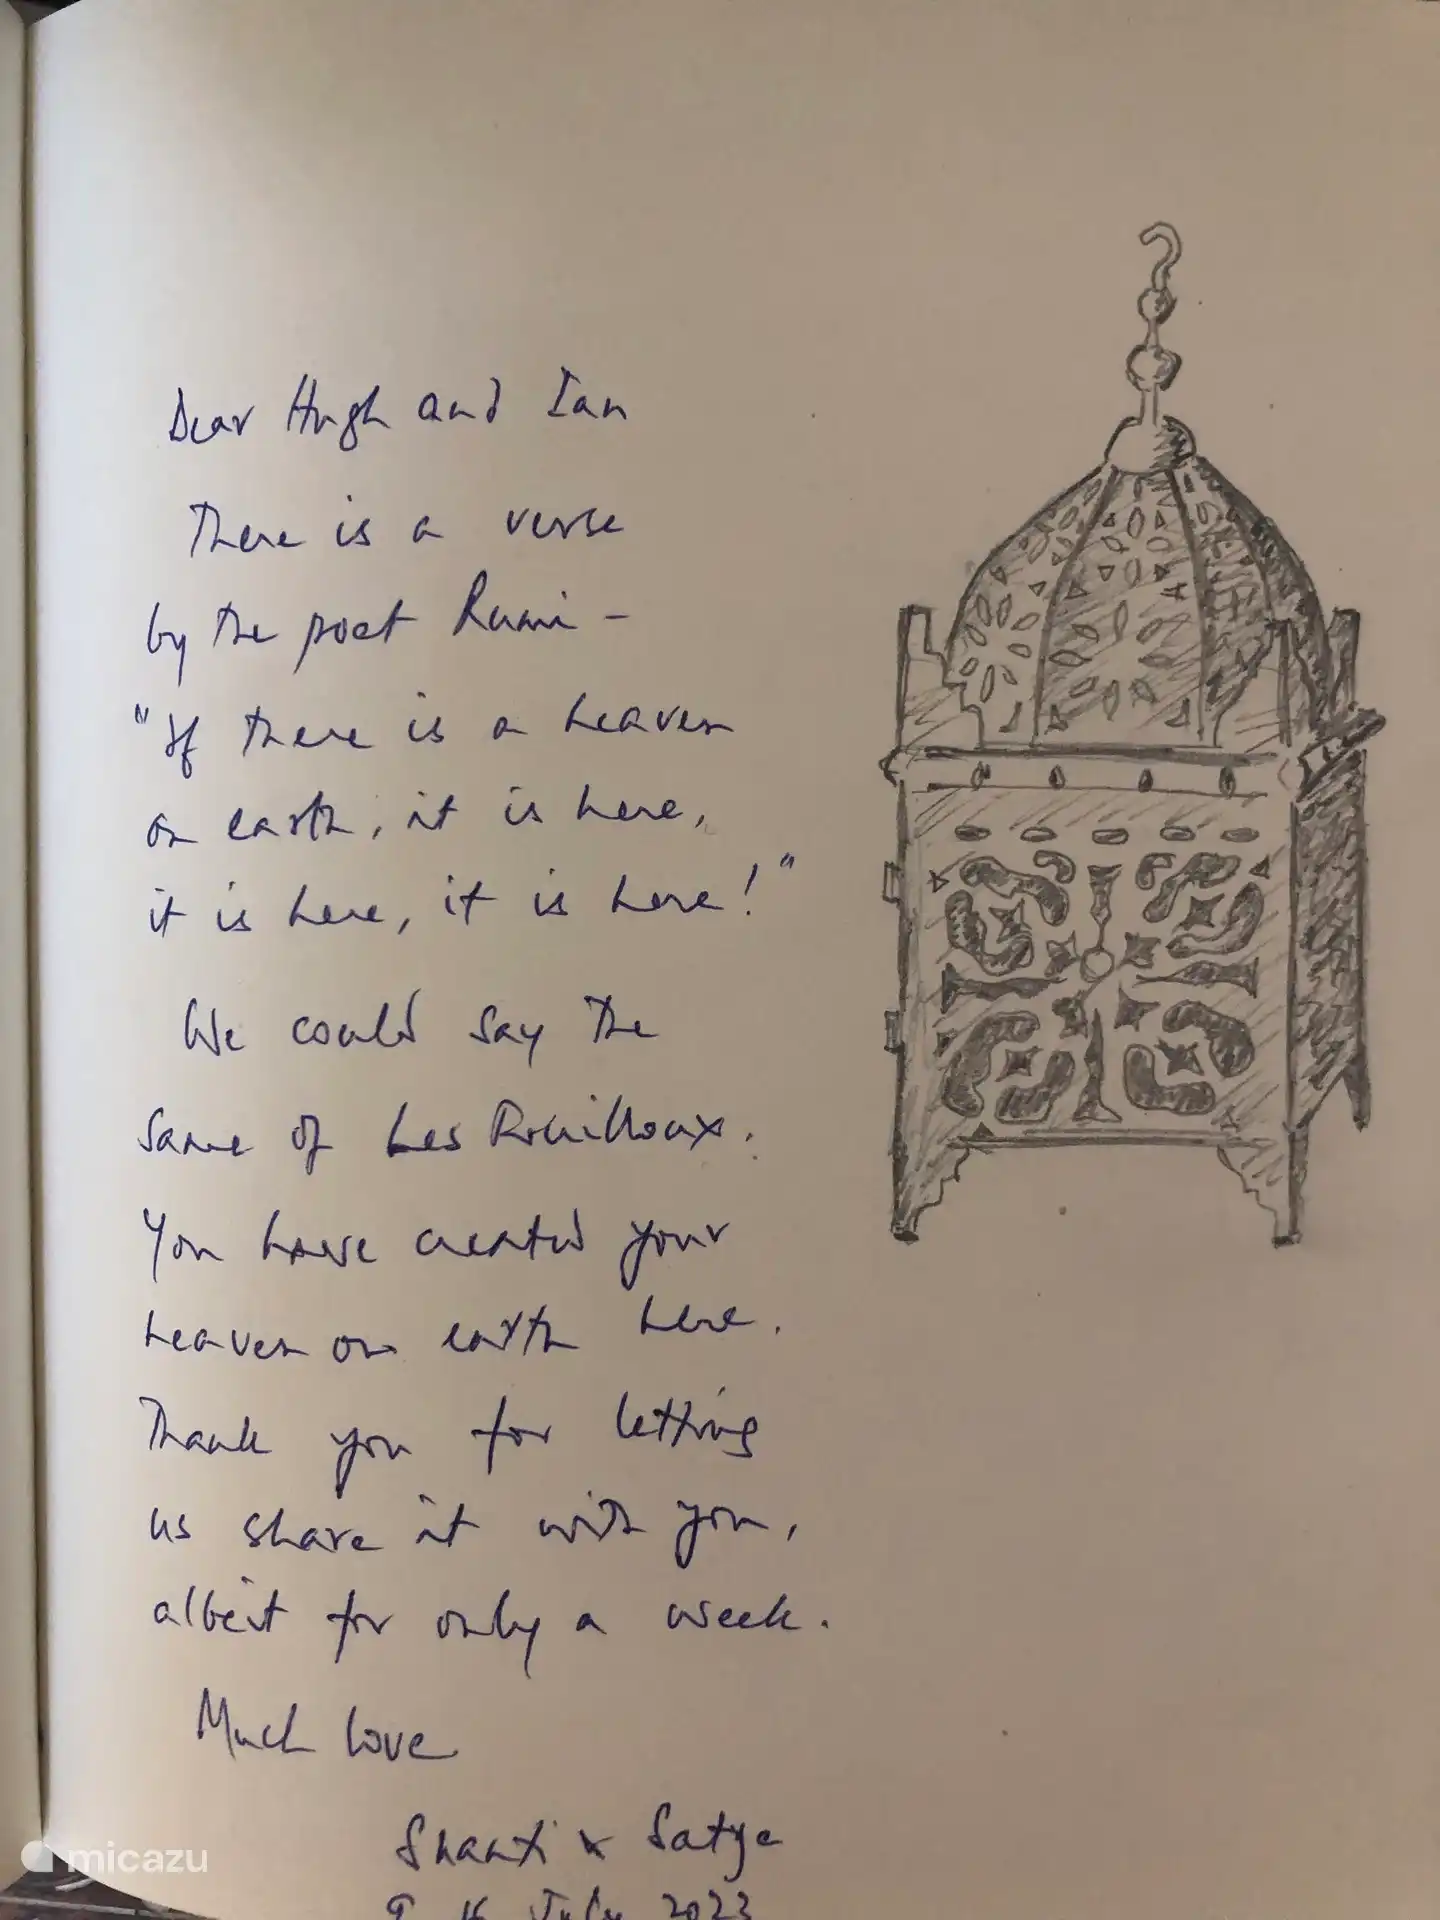 Dear Hugh and Ian
There is a verse
by the poet Rumi –
"If there is a heaven
on earth, it is here,
it is here, it is here!"
We could say the
same of Les Rouilloux.
You have created your
heaven on earth here.
Thank you for letting
us share it with you,
albeit for only a week.
Much love
Shanti & Satya
9 16 July 2023
micazu